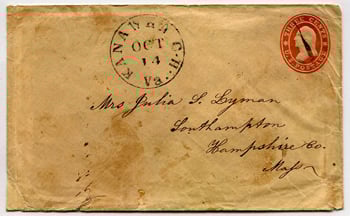 KANAWHA C.H.
OCT
14
Va.
THREE CENTS
Mrs Julia S. Lyman
Southampton
Hampshire Co.
Mass